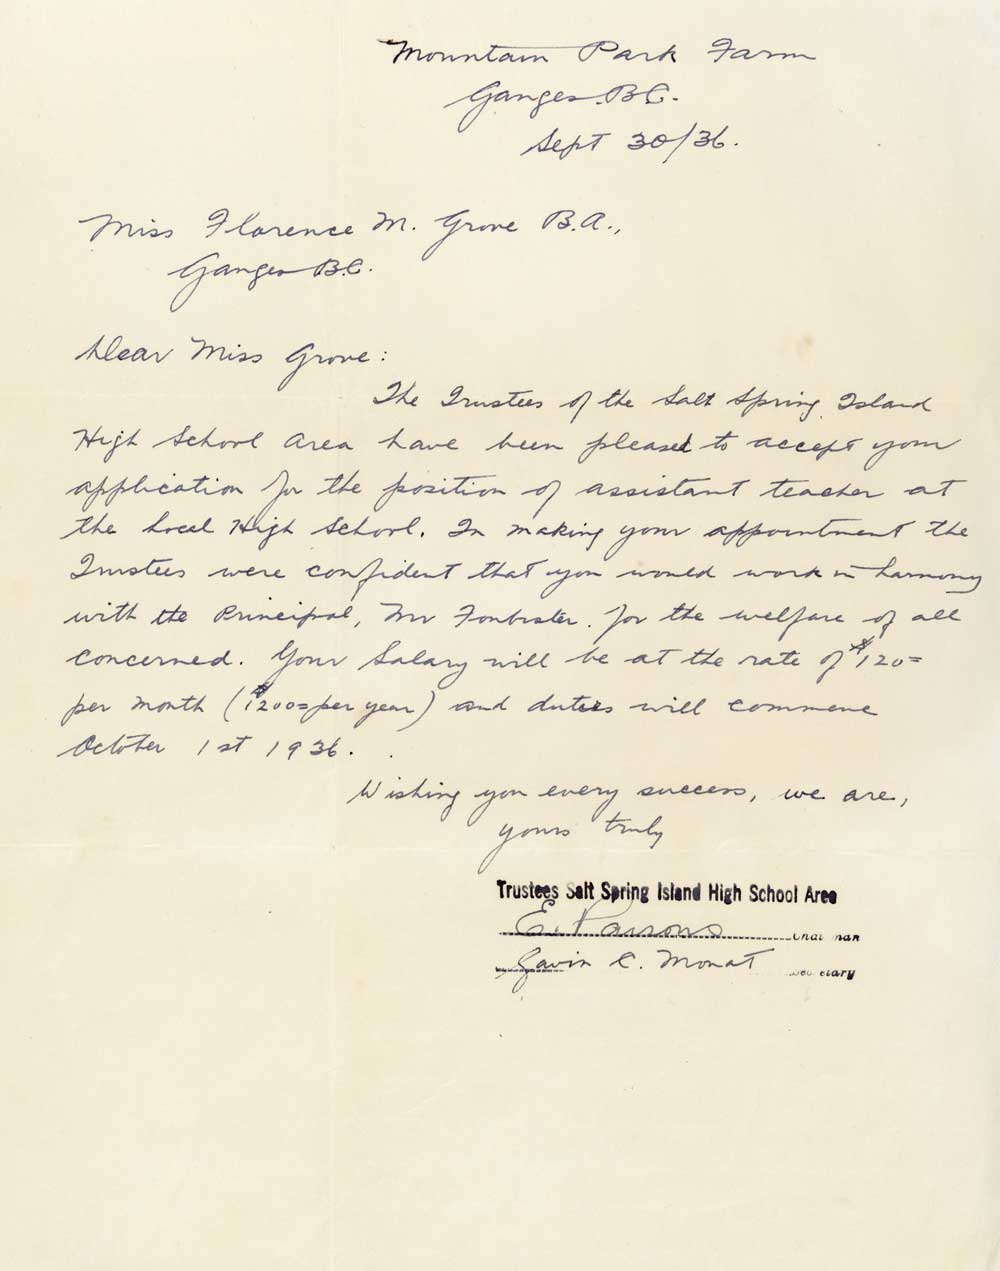 Mountain Park Farm
Ganges B.C.
Sept 30/36.
Miss Florence M. Grove B.A.,
Ganges B.C.
Dear Miss Grove:
The Trustees of the Salt Spring Island
High School Area have been pleased to accept your
application for the position of assistant teacher at
the Local High School. In making your appointment the
Trustees were confident that you would work in harmony
with the Principal, Mr Foubister. for the welfare of all
concerned. Your Salary will be at the rate of $120=
per month ($1200= per year) and duties will commence
October 1st 1936.
Wishing you every success, we are,
yours truly
Trustees Salt Spring Island High School Area
E. Parsons Chairman
Gavin C. Mouat Secretary